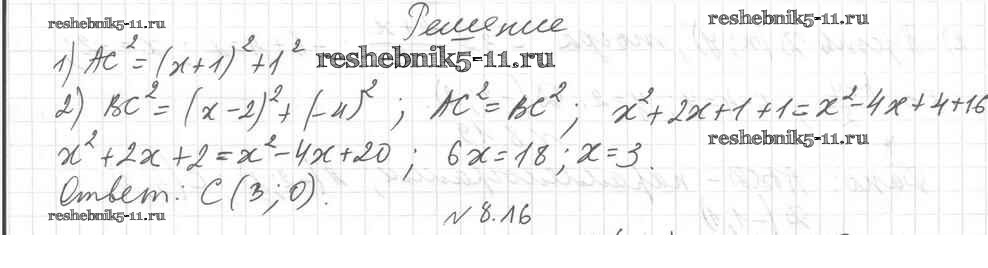 reshebnik5-11.ru Решение reshebnik5-11.ru
1) AC² = (x+1)² + 1² reshebnik5-11.ru
2) BC² = (x-2)² + (-4)² ; AC² = BC² ; x² + 2x + 1 + 1 = x² - 4x + 4 + 16
reshebnik5-11.ru
x² + 2x + 2 = x² - 4x + 20 ; 6x = 18 ; x = 3.
Ответ: C (3 ; 0).
reshebnik5-11.ru
№ 8.16